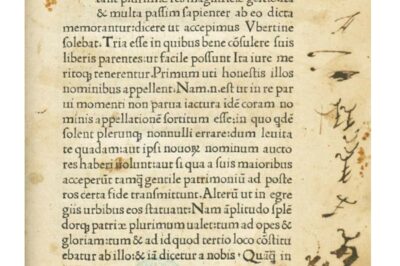 tant plurimæ res
& multa passim sapienter ab eo dicta
memorantur:dicere ut accepimus Vbertine
solebat.Tria esse in quibus bene cōsulere suis
liberis parentes:ut facile possunt Ita iure me
ritoqꝫ tenerentur.Primum uti honestis illos
nominibus appellent.Nam.n.est ut in re par
ui momenti non parua iactura idē coram no
minis appellationē sortitum esse:in quo qdē
solent plerunqꝫ nonnulli errare:dum leuita
te quadam:aut ipsi nouoꝝ nominum aucto
res haberi uolunt:aut si qua a suis maioribus
acceperūt tamq̄ gentile patrimoniū ad poste
ros certa fide transmittunt.Alterū ut in egre
giis urbibus eos statuant:Nam āplitudo splē
dorqꝫ patriæ plurimum ualet:tum ad opes &
gloriam:tum & ad id quod tertio loco cōstitu
ebatur ab illo:& iā dicetur a nobis. Quāq̄ in